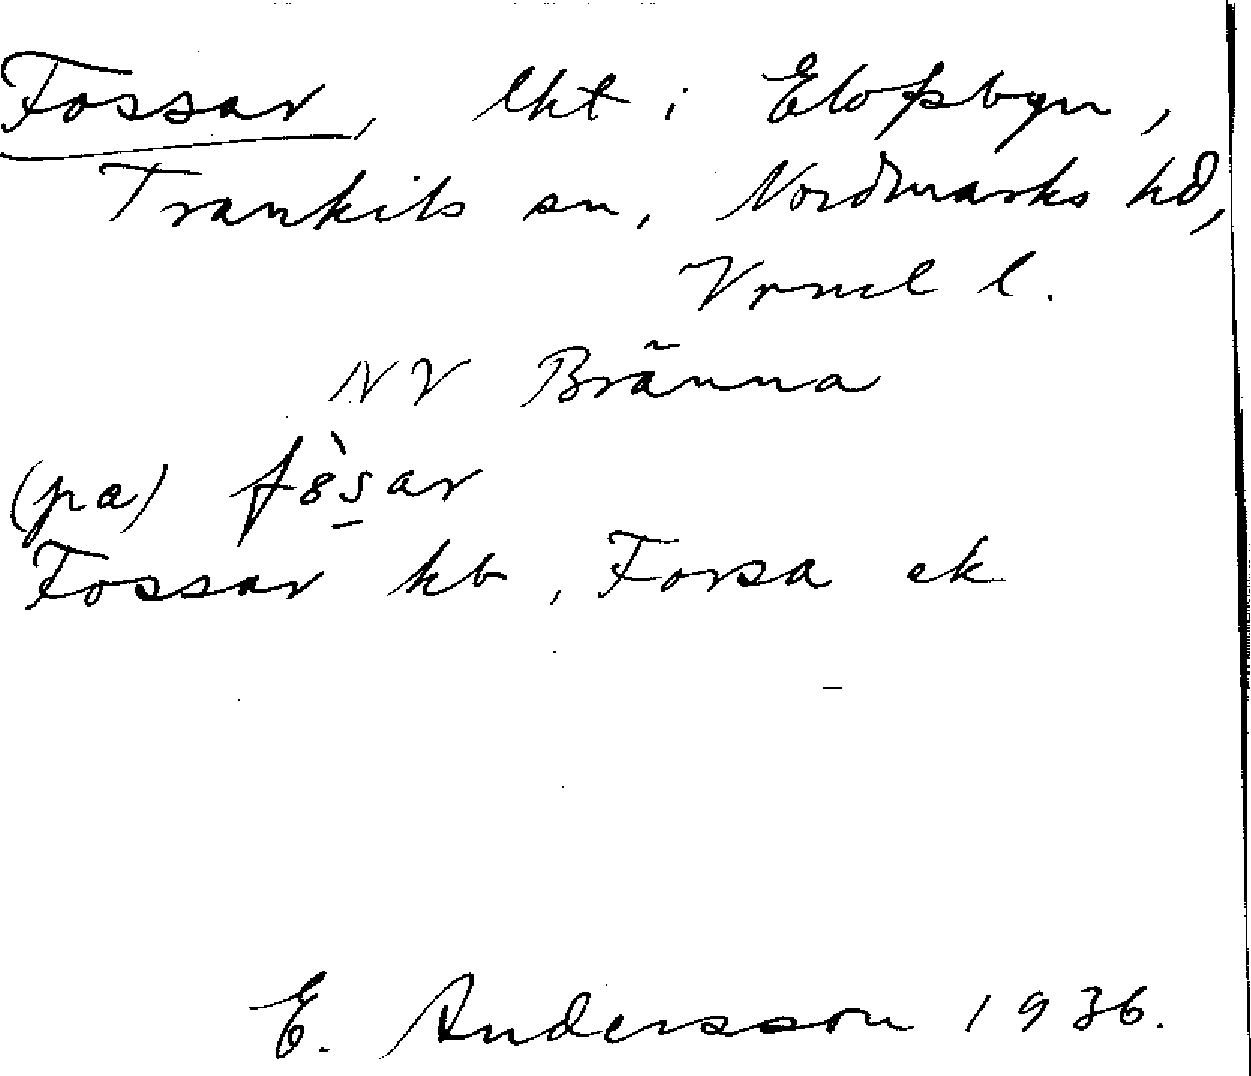 Fossar, lht i Elofsbyn,
Trankils sn, Nordmarks hd,
Vrml l.
NV Bränna
(pa) fὸs̲ar
Fossar kb, Forsa ek
E. Andersson 1936.